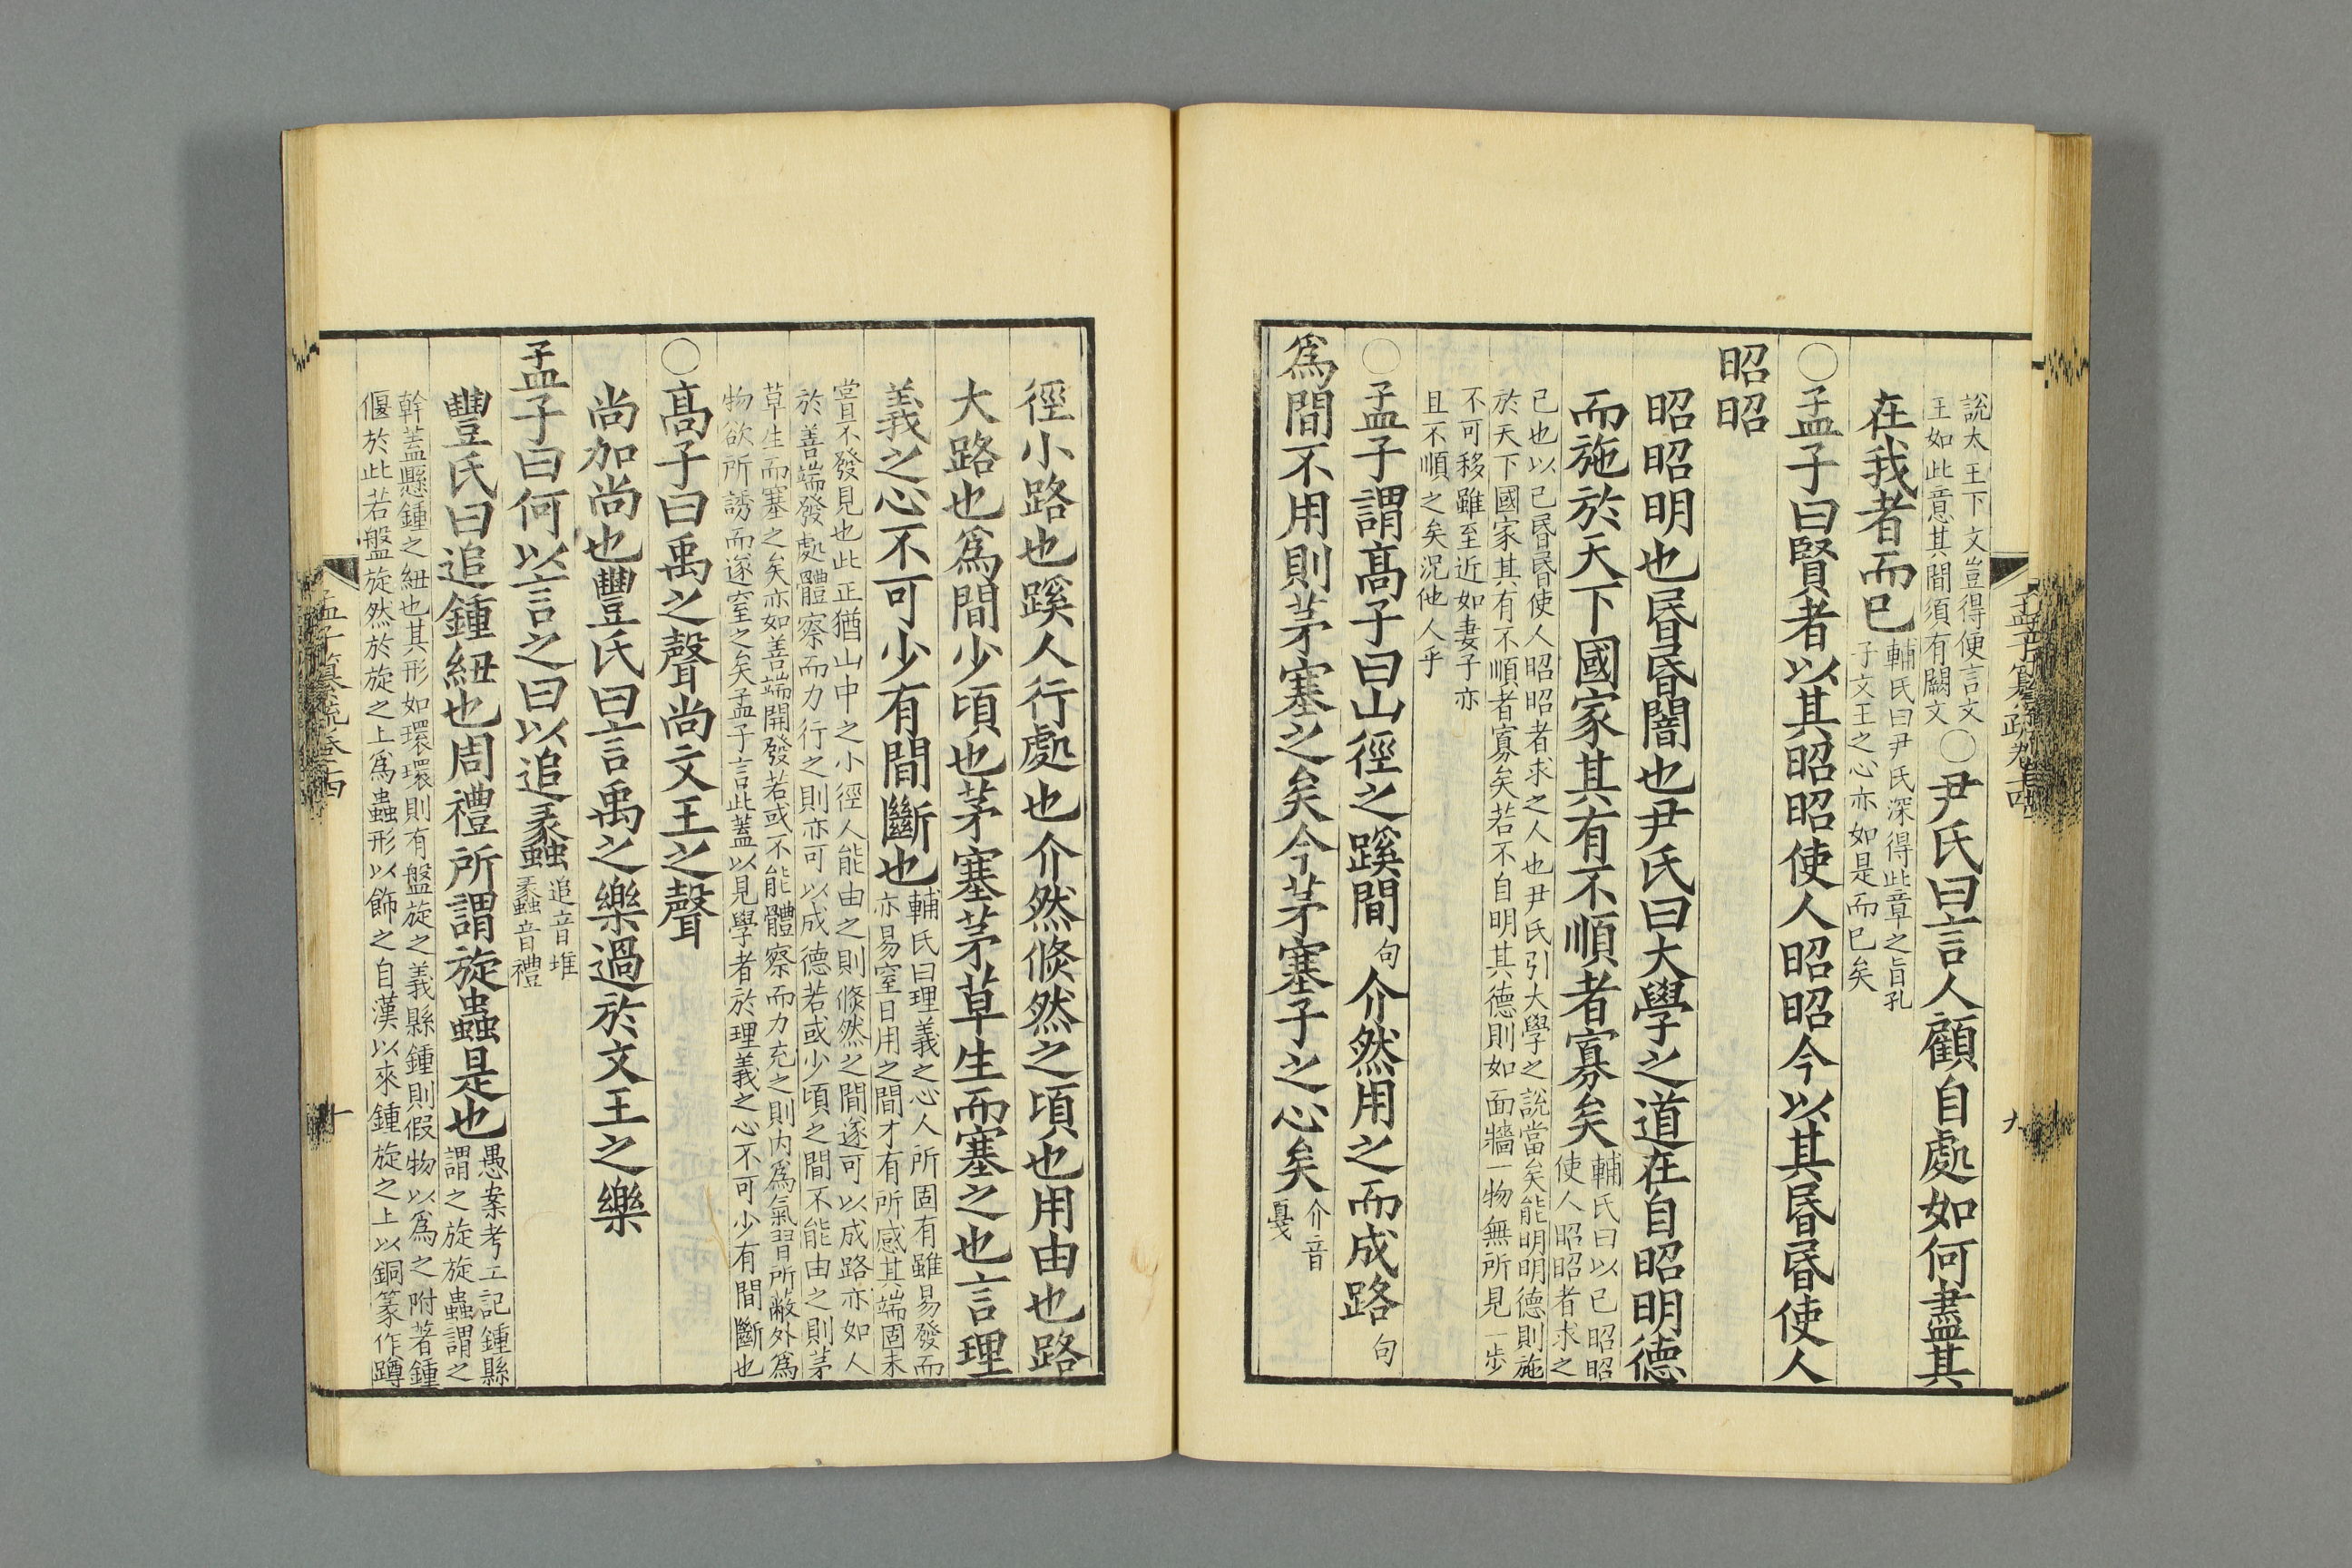 說太王下文豈得便言文
王如此意其間須有闕文
○尹氏曰言人顧自處如何盡其
在我者而已
輔氏曰尹氏深得此章之旨孔
子文王之心亦如是而已矣
○孟子曰賢者以其昭昭使人昭昭今以其昬昬使人
昭昭
昭昭明也昬昬闇也尹氏曰大學之道在自昭明德
而施於天下國家其有不順者寡矣
輔氏曰以己昭昭
使人昭昭者求之
己也以己昬昬使人昭昭者求之人也尹氏引大學之說當矣能明明德則施
於天下國家其有不順者寡矣若不自明其德則如面牆一物無所見一步
不可移雖至近如妻子亦
且不順之矣況他人乎
○孟子謂髙子曰山徑之蹊間句介然用之而成路句
爲間不用則茅塞之矣今茅塞子之心矣
介音
戛
徑小路也蹊人行處也介然倐然之頃也用由也路
大路也爲間少頃也茅塞茅草生而塞之也言理
義之心不可少有間斷也
輔氏曰理義之心人所固有雖易發而
亦易窒日用之間才有所感其端固未
嘗不發見也此正猶山中之小徑人能由之則倐然之間遂可以成路亦如人
於善端發處體察而力行之則亦可以成德若或少頃之間不能由之則茅
草生而塞之矣亦如善端開發若或不能體察而力充之則内爲氣習所蔽外爲
物欲所誘而遂窒之矣孟子言此蓋以見學者於理義之心不可少有間斷也
○髙子曰禹之聲尚文王之聲
尚加尚也豐氏曰言禹之樂過於文王之樂
孟子曰何以言之曰以追蠡
追音堆
蠡音禮
豐氏曰追鍾紐也周禮所謂旋蟲是也
愚案考工記鍾縣
謂之旋旋蟲謂之
幹蓋懸鍾之紐也其形如環環則有盤旋之義縣鍾則假物以爲之附著鍾
偃於此若盤旋然於旋之上爲蟲形以飾之自漢以來鍾旋之上以銅篆作蹲
孟子纂疏卷十四
九
孟子纂疏卷十四
十